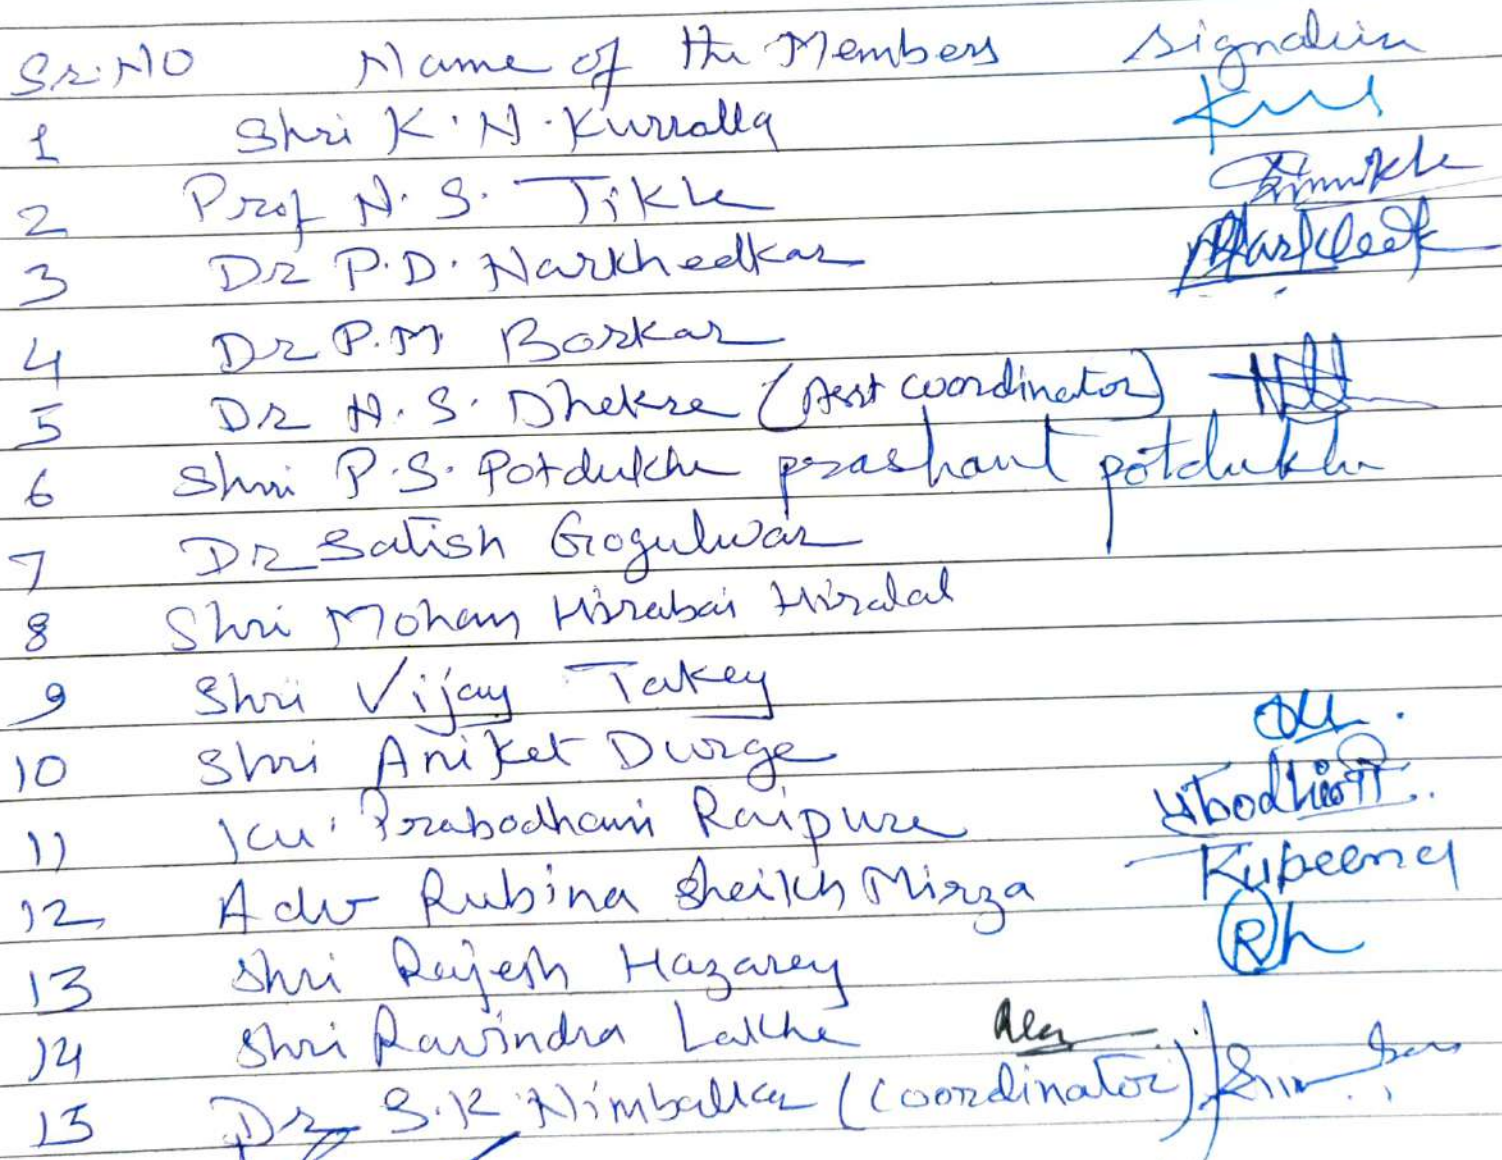 Sr. No Name of the Members Signature
1 Shri K. N. Kurralla
2 Prof N. S. Tikle
3 Dr P. D. Narkhedkar
4 Dr P. M. Borkar
5 Dr N. S. Dhekre (Asst Coordinator)
6 Shri P. S. Potdukhe prashant potdukhe
7 Dr Satish Gogulwar
8 Shri Mohan Hirabai Hiralal
9 Shri Vijay Takey
10 Shri Aniket Durge
11 Ku. Prabodhani Raipure
12 Adv Rubina Sheikh Mirza Rubeena
13 Shri Rajesh Hazarey Rh
14 Shri Ravindra Lakhe
15 Dr S. K. Nimbalkar (Coordinator)